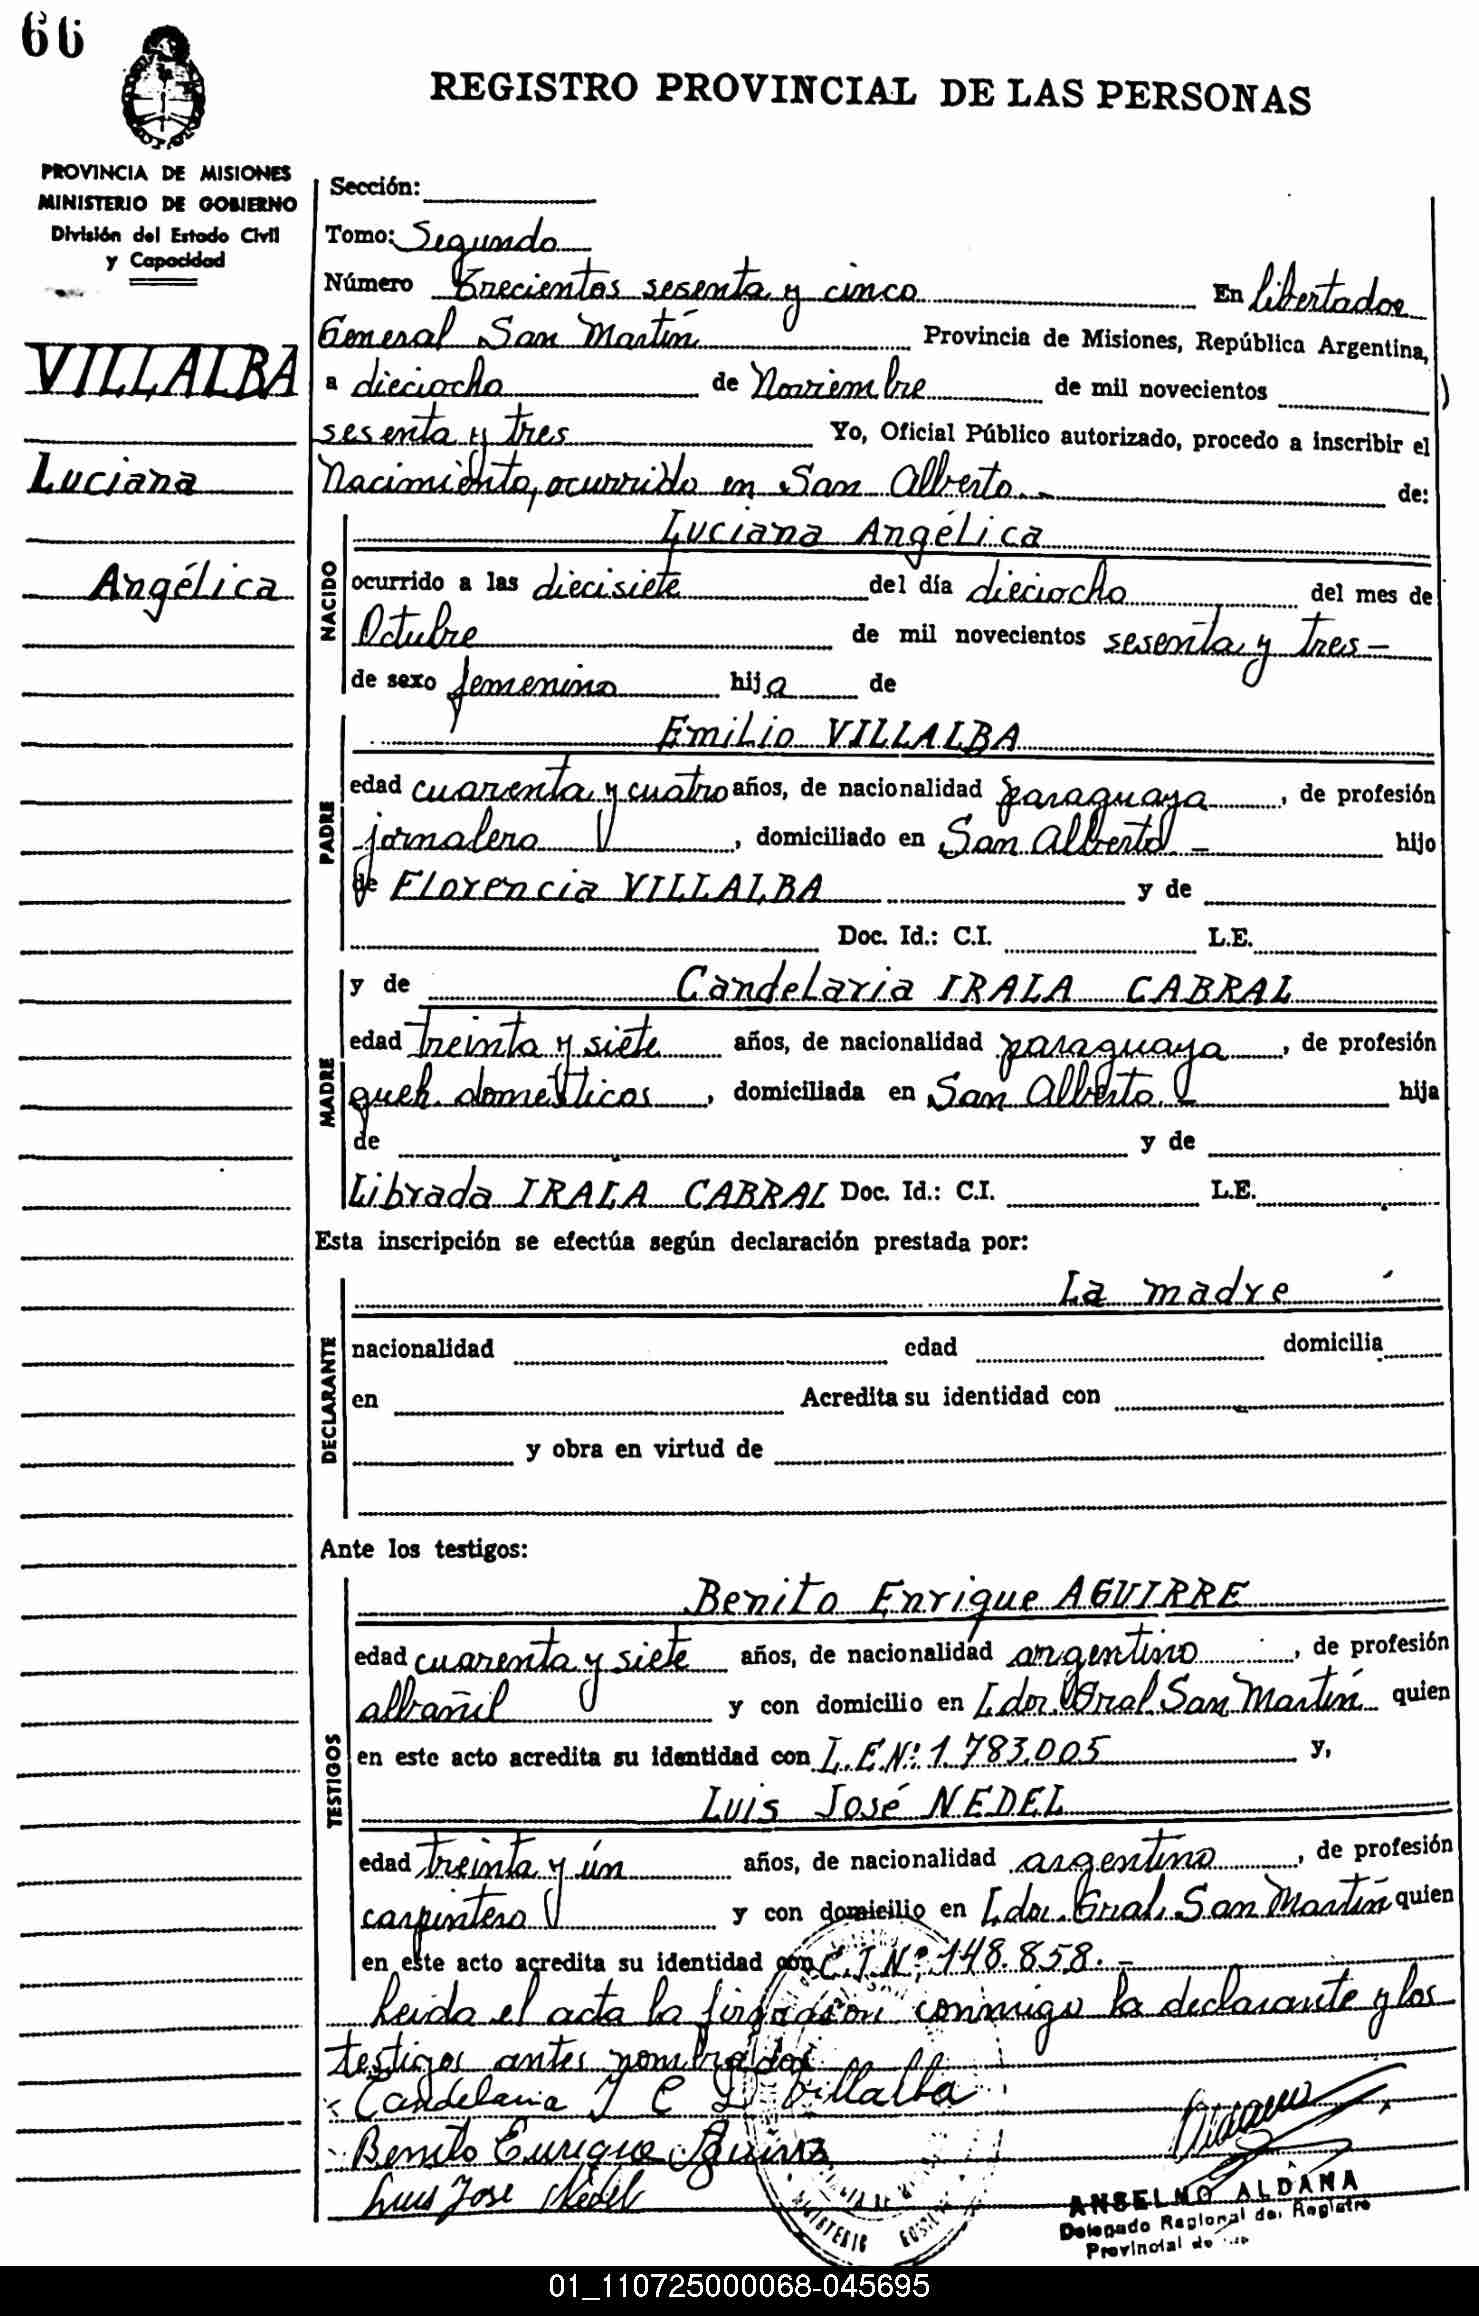 66
REGISTRO PROVINCIAL DE LAS PERSONAS
PROVINCIA DE MISIONES
MINISTERIO DE GOBIERNO
División del Estado Civil
y Capacidad
VILLALBA
Luciana
Angélica
Sección:
Tomo: Segundo
Número Trecientos sesenta y cinco En Libertador
General San Martín Provincia de Misiones, República Argentina,
a dieciocho de Noviembre de mil novecientos
sesenta y tres Yo, Oficial Público autorizado, procedo a inscribir el
Nacimiento, ocurrido en San Alberto.- de:
NACIDO
Luciana Angélica
ocurrido a las diecisiete del día dieciocho del mes de
Octubre de mil novecientos sesenta y tres-
de sexo femenino hija de
PADRE
Emilio VILLALBA
edad cuarenta y cuatro años, de nacionalidad paraguaya, de profesión
jornalero, domiciliado en San Alberto - hijo
de Florencia VILLALBA y de
Doc. Id.: C.I. L.E.
MADRE
y de Candelaria IRALA CABRAL
edad treinta y siete años, de nacionalidad paraguaya, de profesión
queh. domesticos, domiciliada en San Alberto.- hija
de y de
Librada IRALA CABRAL Doc. Id.: C.I. L.E.
Esta inscripción se efectúa según declaración prestada por:
DECLARANTE
La madre
nacionalidad edad domicilia
en Acredita su identidad con
y obra en virtud de
Ante los testigos:
TESTIGOS
Benito Enrique AGUIRRE
edad cuarenta y siete años, de nacionalidad argentino, de profesión
albañil y con domicilio en Ldor. Gral. San Martín quien
en este acto acredita su identidad con L.E.Nº: 1.783.005 y,
Luis José NEDEL
edad treinta y ún años, de nacionalidad argentino, de profesión
carpintero y con domicilio en Ldor. Gral. San Martín quien
en este acto acredita su identidad con C.I.Nº: 148.858.-
Leida el acta la firmaron conmigo la declarante y los
testigos antes nombrados
Candelaria I C D Villalba
Benito Enrique Aguirre
Luis Jose Nedel
ANSELMO ALDANA
Delegado Regional del Registro
Provincial de
MINISTERIO GOBIERNO
01_110725000068-045695